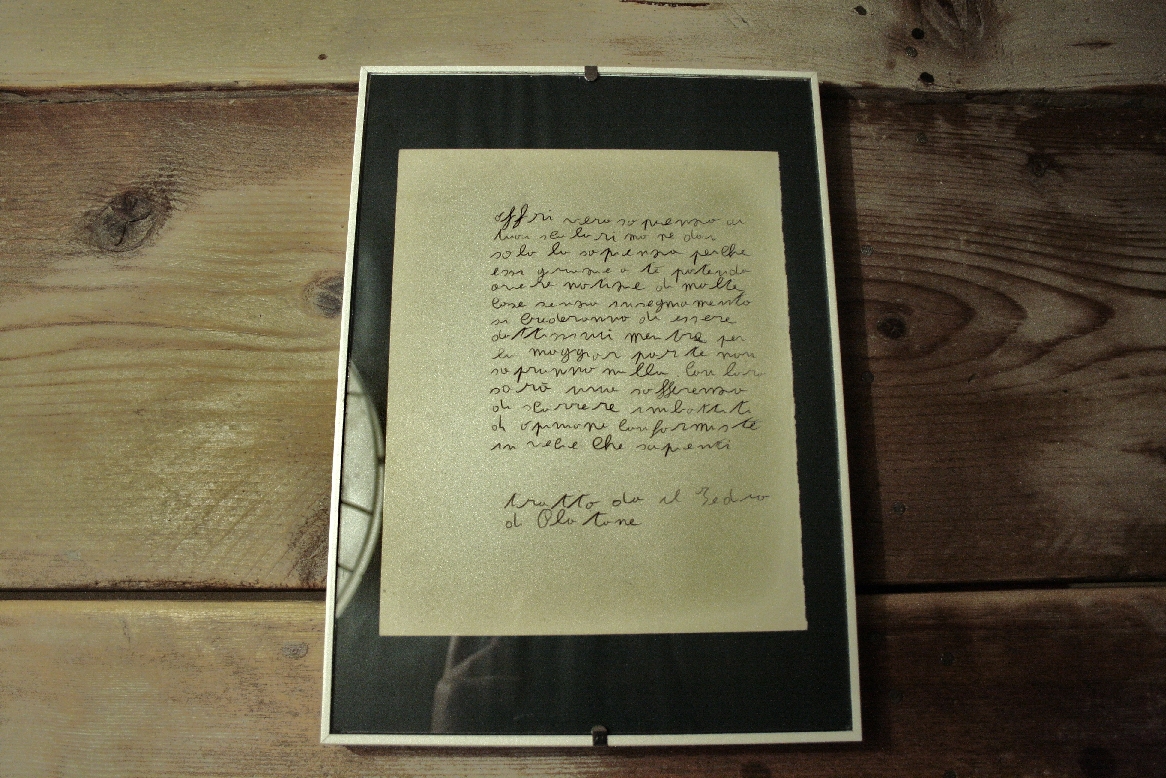 offri vera sapienza ai
tuoi scolari ma ne dai
solo la sapienza perche
essi grazie a te potendo
avere notizie di molte
cose senza insegnamento
si crederanno di essere
dottissimi mentre per
la maggior parte non
sapranno nulla con loro
sarà una sofferenza
di scorrere imbottiti
di opinione conformiste
in vece che sapienti
tratto da il Fedro
di Platone